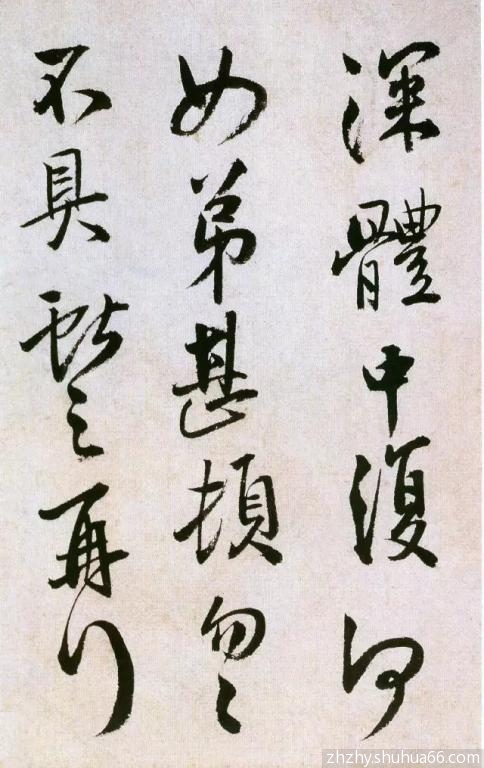 深體中復何
如弟甚頓匆々
不具獻之再行
zhzhy.shuhua66.com